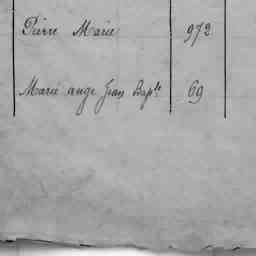 Pierre Marie 972
Marie ange Jean Bapte 69